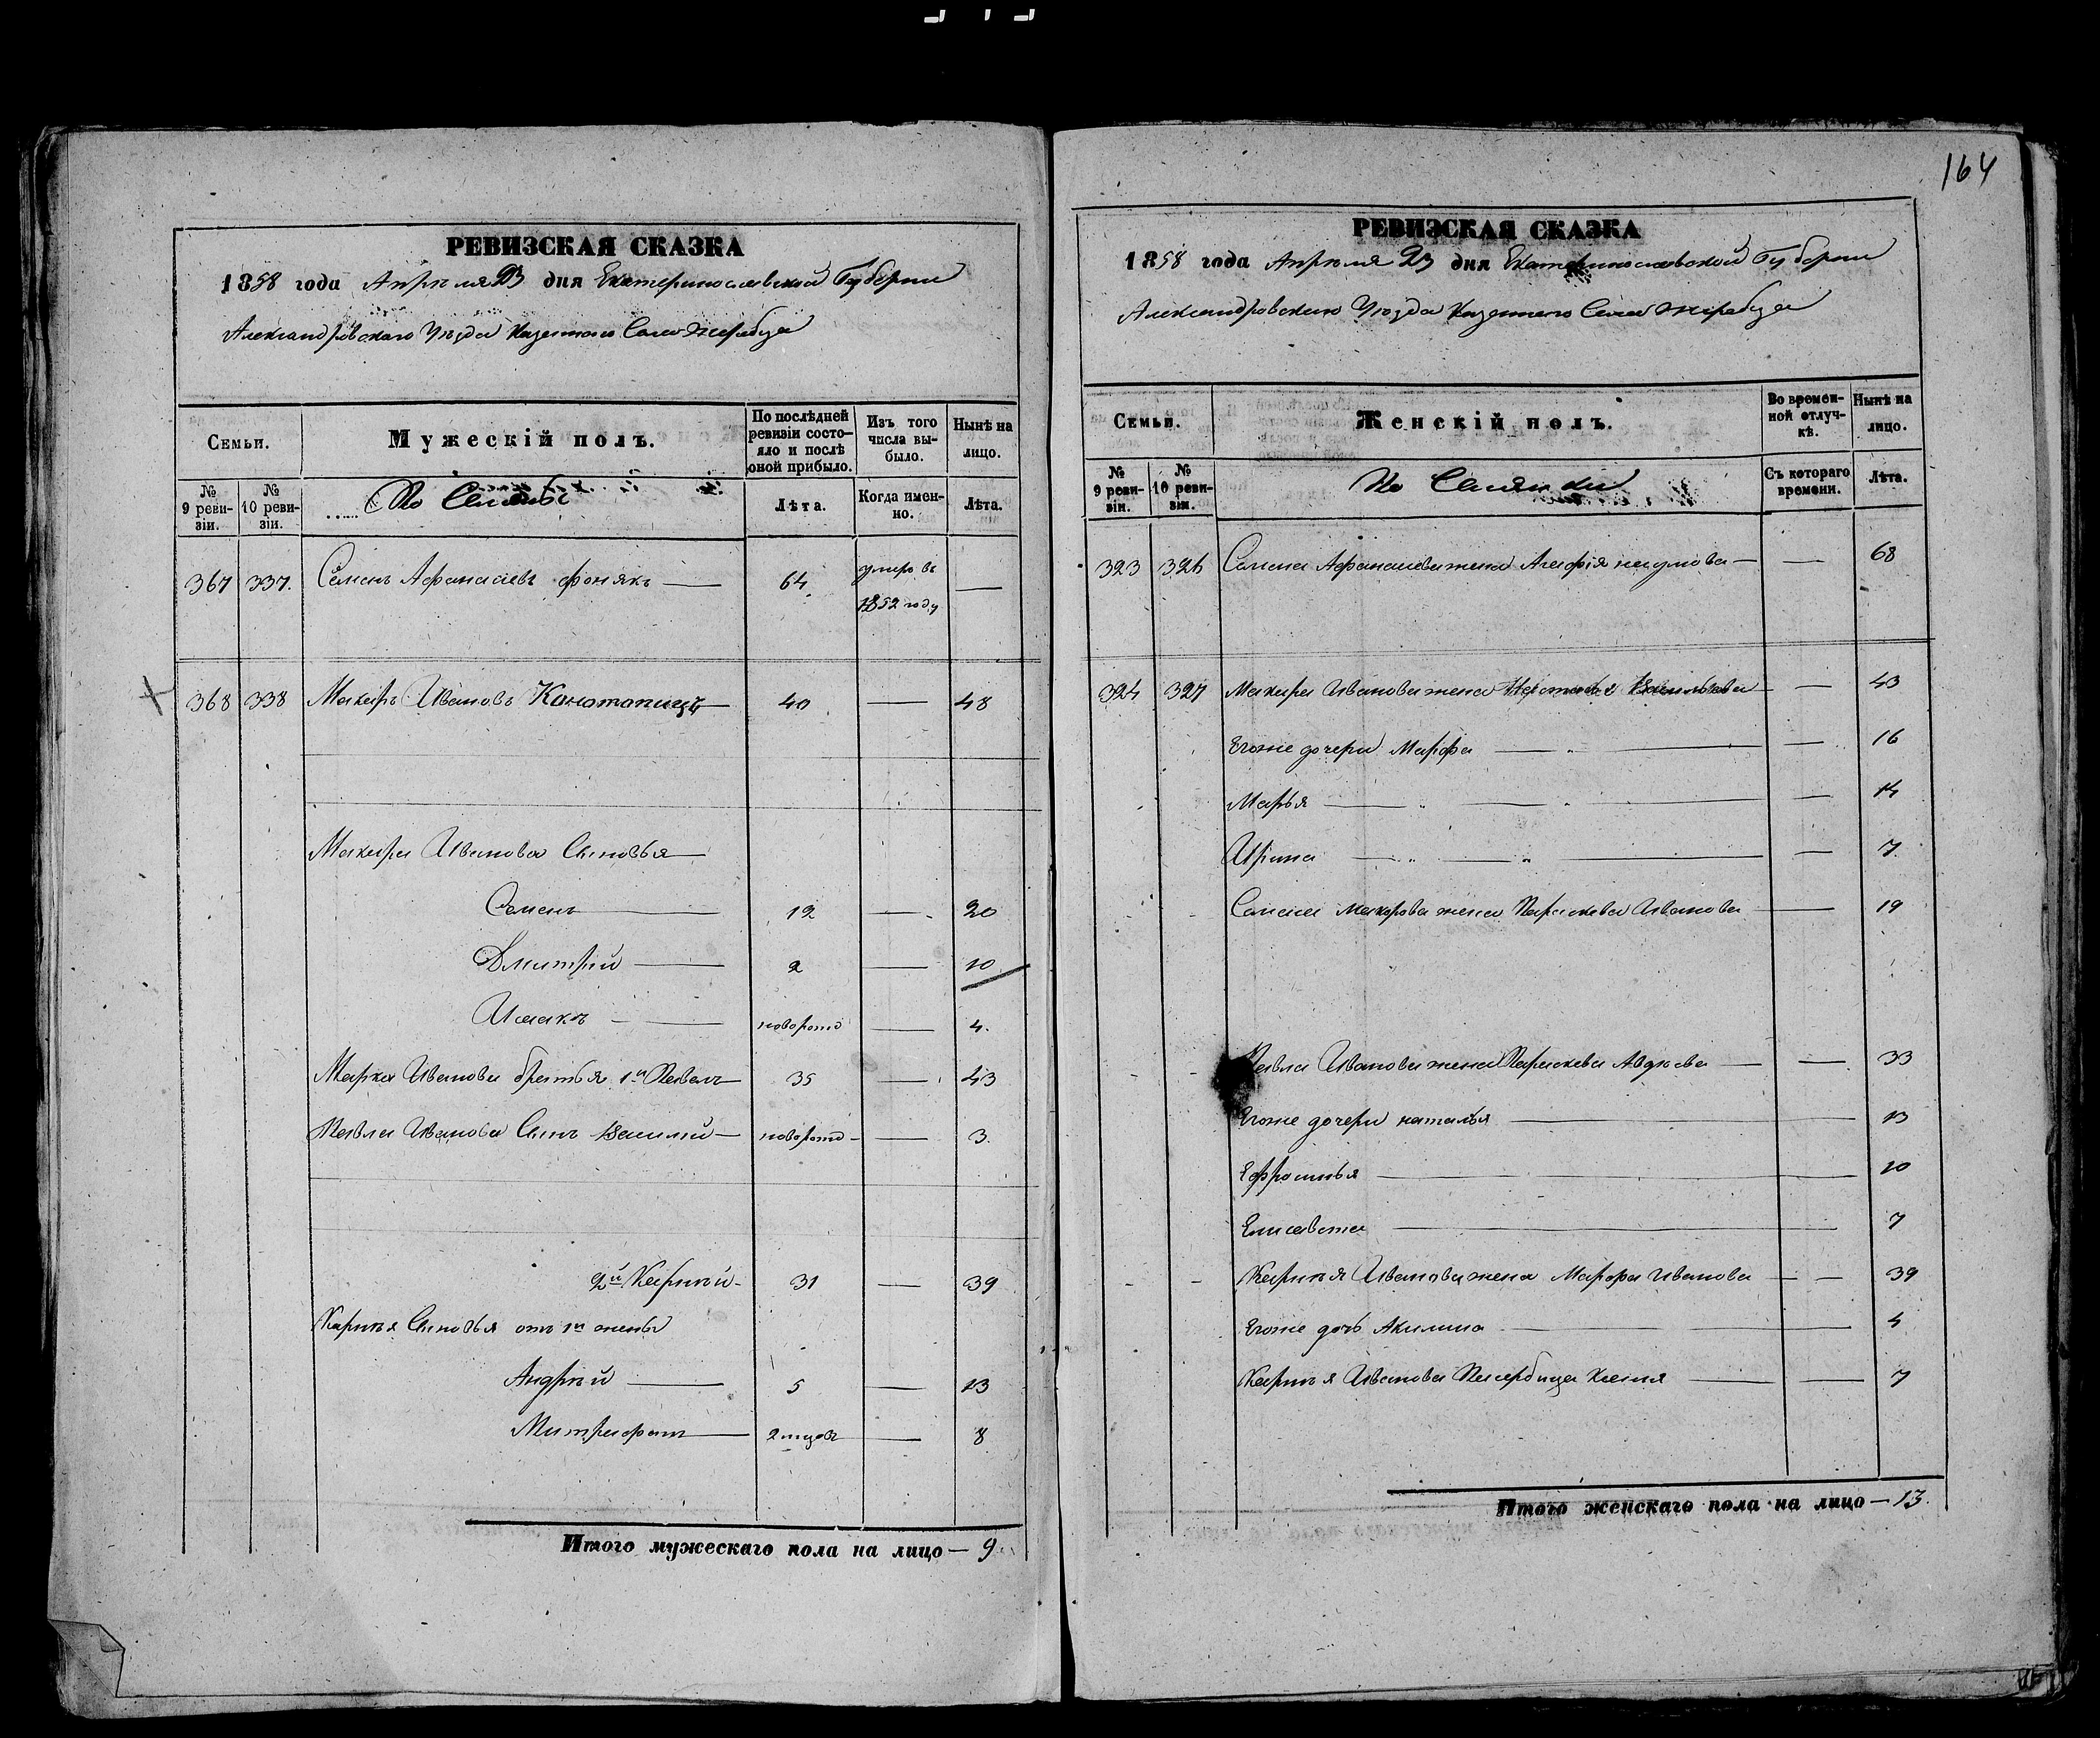 164
РЕВИЗСКАЯ СКАЗКА
1858 года Апреля 23 дня Екатеринославской Губернии
Александровскаго Уѣзда Казеннаго Села Жеребца
Семьи.
Мужескій полъ.
По послѣдней ревизіи состояло и послѣ оной прибыло.
Изъ того числа выбыло.
Нынѣ на лицо.
№ 9 ревизіи.
№ 10 ревизіи.
Лѣта.
Когда именно.
Лѣта.
367 337. Семенъ Афанасіевъ 64 умеръ въ 1852 году —
368 338 Макаръ Ивановъ Конотопицъ — 40 — 48
Макара Иванова Сыновья —
Семенъ — 12 — 20
Дмитрій — 2 — 10
Исаакъ — новорожд — 4.
Марка Иванова братья 1й Павелъ — 35 — 43
Павла Иванова Сынъ Василий — новорожд — — 3.
2й Карпѣй — 31 — 39
Карпѣя Сыновья отъ 1й жены
Андрѣй — 5 — 13
Митрофанъ — 2 мцовъ — 8
Итого мужескаго пола на лицо — 9
РЕВИЗСКАЯ СКАЗКА
1858 года Апреля 23 дня Екатеринославской Губернии
Александровскаго Уѣзда Казеннаго Села Жеребца
Семьи.
Женскій полъ.
Во временной отлучкѣ.
Нынѣ на лицо.
№ 9 ревизіи.
№ 10 ревизіи.
Съ котораго времени.
Лѣта.
323 326 Семена Афанасиева жена Агафія Наумова — — 68
324 327 Макара Иванова жена — — 43
Егоже дочери Марфа — — 16
Марья — — 14
Ирина — — 7.
Семена Макарова жена Параскева Иванова — 19
Павла Иванова жена Параскева Авдѣева — — 33
Егоже дочери наталья — 13
Ефросинья — 10
Елисавета — 7
Карпѣя Иванова жена Марфа Иванова — — 39
Егоже дочь Акилина — 4
Карпѣя Иванова Пасербица Ксенія — — 7
Итого женскаго пола на лицо — 13.